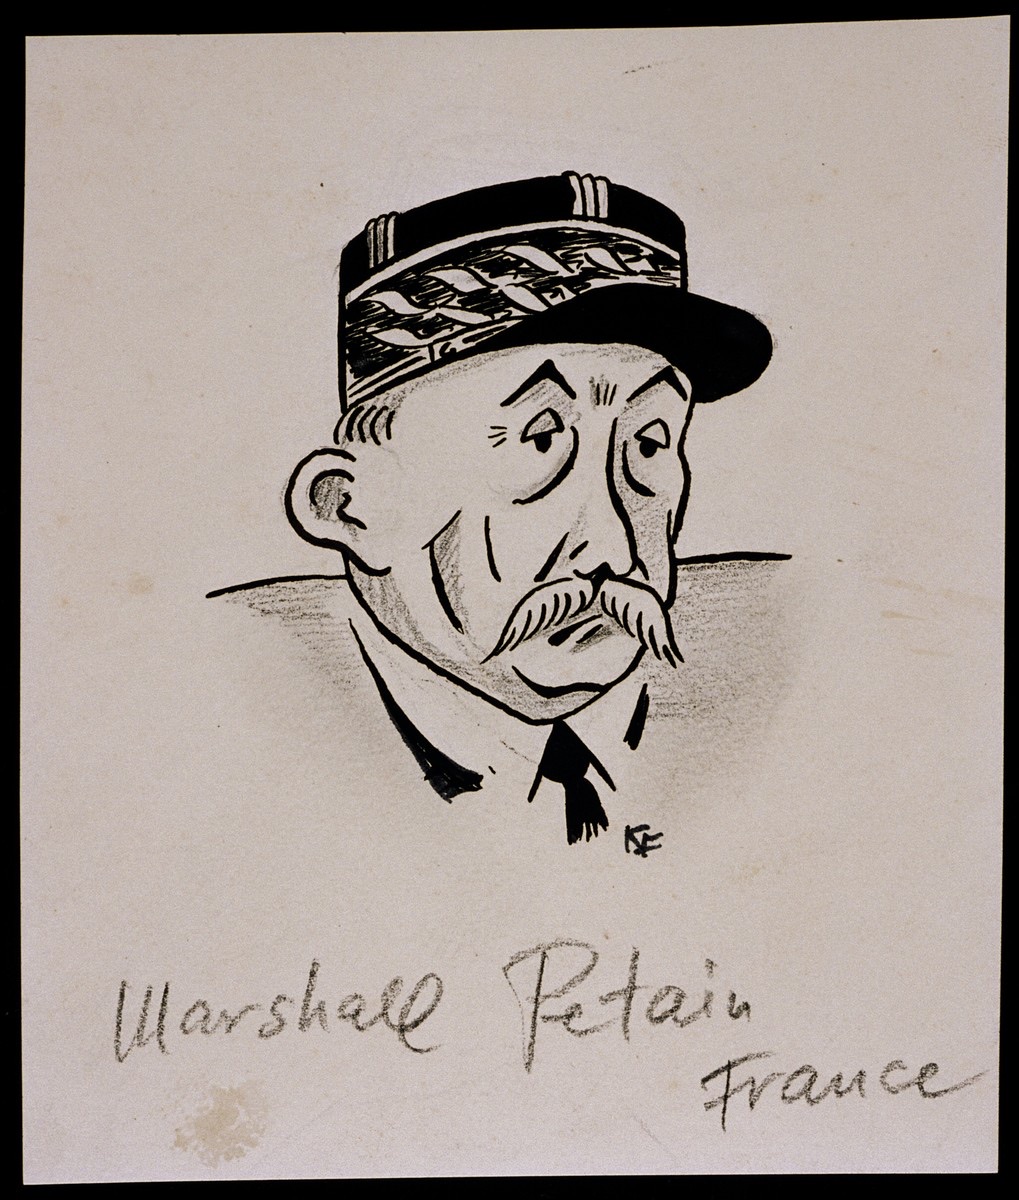 KF
Marshall Petain
France